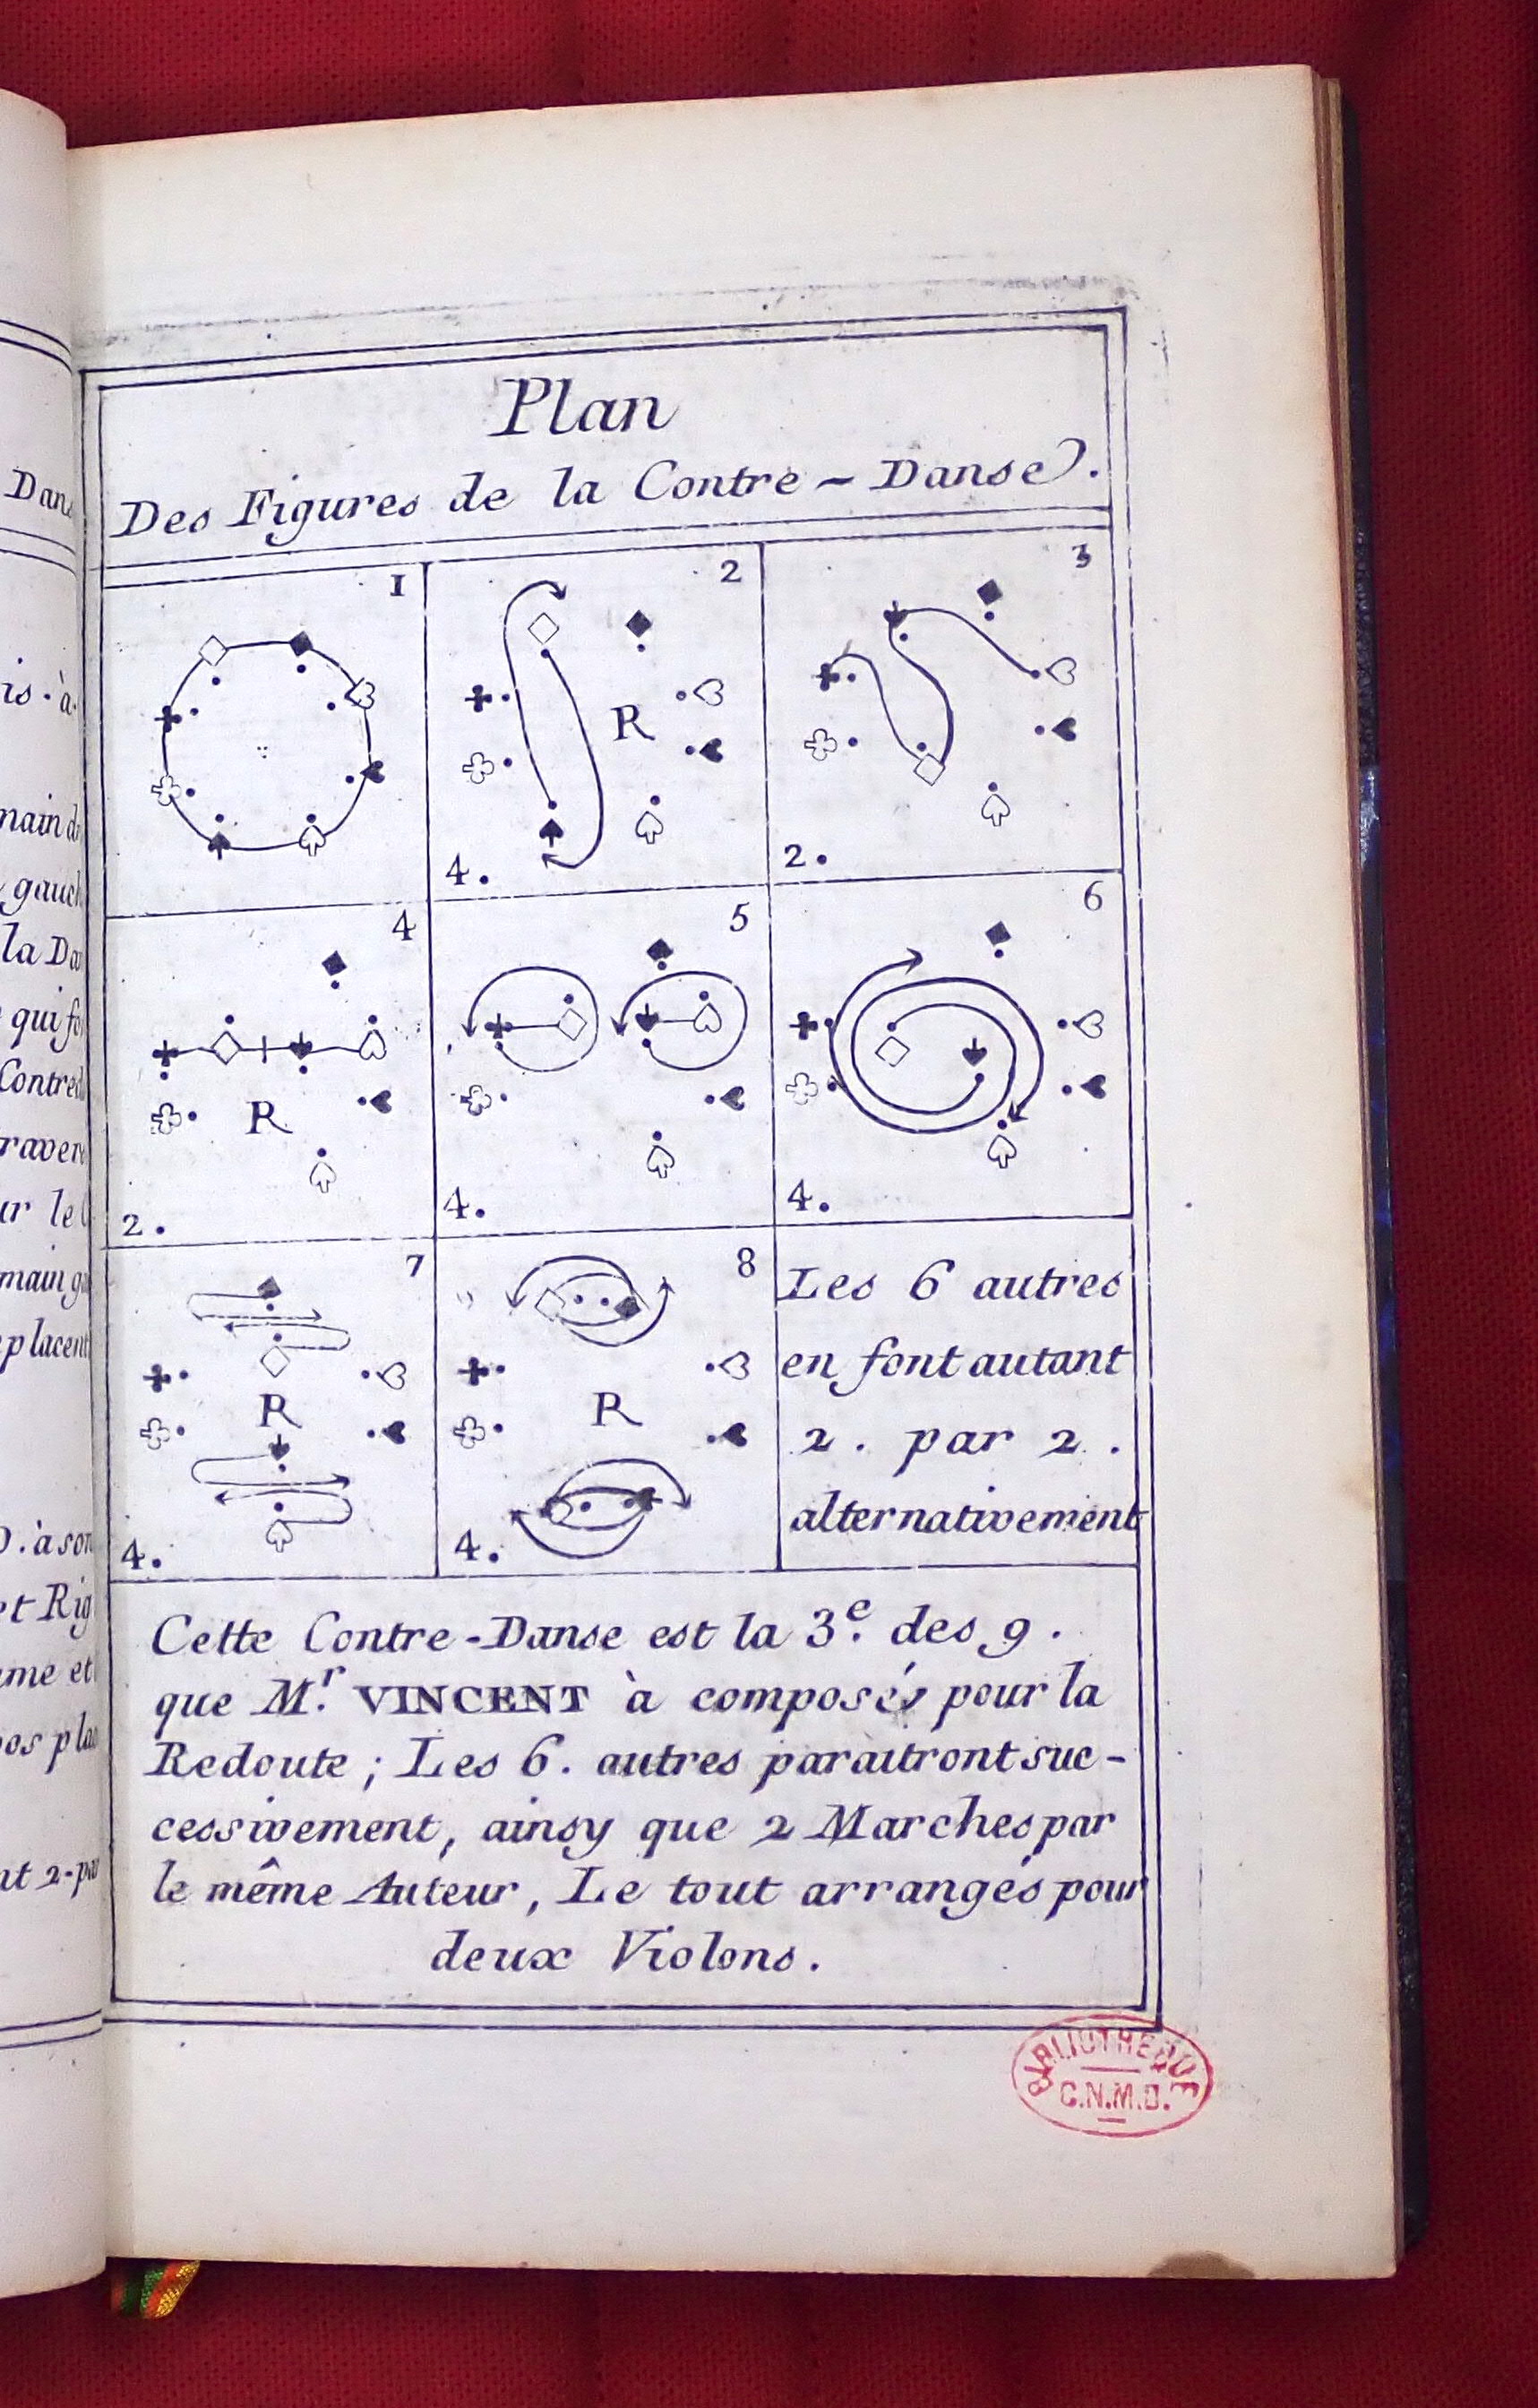 Dans
is. à
main d
gauch
la Da
qui fo
Contred
raver
ur le
main g
placent
D. à son
et Rig
me et
os pla
nt 2. pa
Plan
Des Figures de la Contre - Danse.
1
2
R
4.
3
2.
4
R
2.
5
4.
6
4.
7
R
4.
8
R
4.
Les 6 autres
en font autant
2. par 2.
alternativement
Cette Contre-Danse est la 3e. des 9.
que Mr. VINCENT à composés pour la
Redoute; Les 6. autres paraitront suc-
cessivement, ainsy que 2 Marches par
le même Auteur, Le tout arrangés pour
deux Violons.
BIBLIOTHEQUE
C.N.M.D.